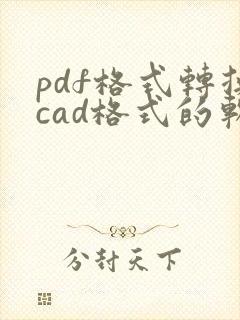 pdf格式轉
cad格式的
分封天下